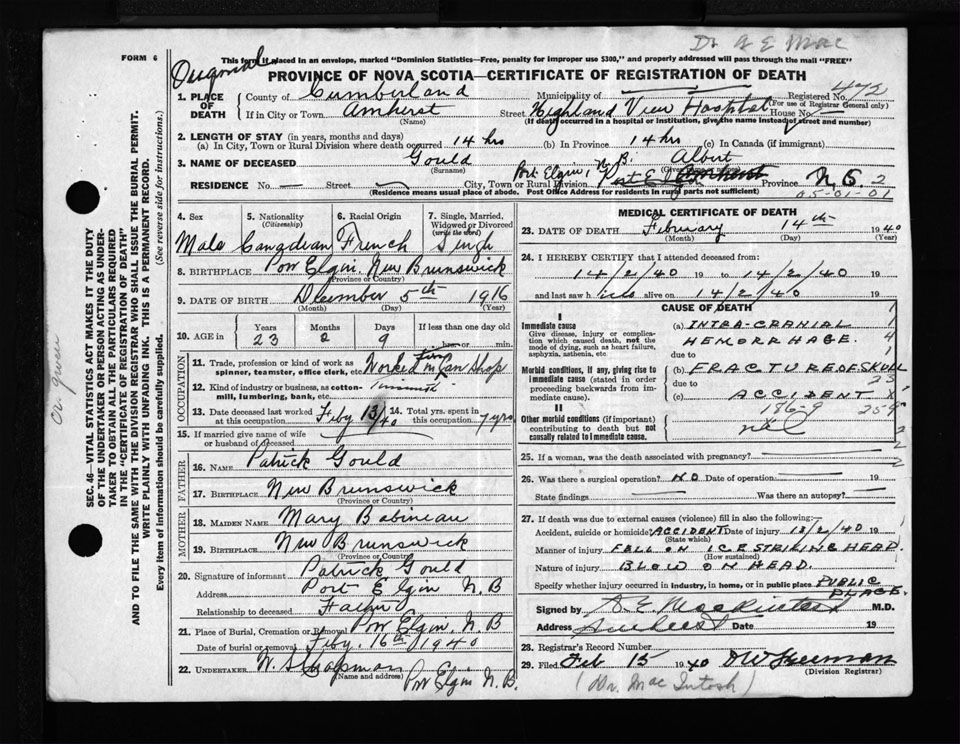 Dr A E Mac
FORM 6
Original
This form if placed in an envelope, marked "Dominion Statistics—Free, penalty for improper use $300," and properly addressed will pass through the mail "FREE"
PROVINCE OF NOVA SCOTIA—CERTIFICATE OF REGISTRATION OF DEATH
1. PLACE OF DEATH
County of Cumberland Municipality of Registered No. 472
(For use of Registrar General only)
If in City or Town Amherst Street Highland View Hospital House No.
(Name) (If death occurred in a hospital or institution, give the name instead of street and number)
2. LENGTH OF STAY (in years, months and days)
(a) In City, Town or Rural Division where death occurred 14 hrs (b) In Province 14 hrs (c) In Canada (if immigrant)
3. NAME OF DECEASED Gould Albert
(Surname)
Port Elgin, N.B.
RESIDENCE No. — Street City, Town or Rural Division Port E Amherst Province N.S. 2
(Residence means usual place of abode. Post Office Address for residents in rural parts not sufficient)
05-01-01
4. Sex 5. Nationality (Citizenship) 6. Racial Origin 7. Single, Married, Widowed or Divorced (write the word)
Male Canadian French Single
8. BIRTHPLACE Port Elgin, New Brunswick
(Province or Country)
9. DATE OF BIRTH December 5th 1916
(Month) (Day) (Year)
10. AGE in Years Months Days If less than one day old
23 2 9 hrs. or min.
OCCUPATION
11. Trade, profession or kind of work as spinner, teamster, office clerk, etc. Worked in Can Shop
12. Kind of industry or business, as cotton-mill, lumbering, bank, etc.
13. Date deceased last worked at this occupation Feby 13/40 14. Total yrs. spent in this occupation 7 yrs.
15. If married give name of wife or husband of deceased
FATHER
16. NAME Patrick Gould
17. BIRTHPLACE New Brunswick
(Province or Country)
MOTHER
18. MAIDEN NAME Mary Babineau
19. BIRTHPLACE New Brunswick
(Province or Country)
20. Signature of informant Patrick Gould
Address Port Elgin N.B
Relationship to deceased Father
21. Place of Burial, Cremation or Removal Port Elgin N.B
Date of burial or removal Feby. 16th 1940
22. UNDERTAKER W. S. Chapman
(Name and address) Port Elgin N.B.
MEDICAL CERTIFICATE OF DEATH
23. DATE OF DEATH February 14th 1940
(Month) (Day) (Year)
24. I HEREBY CERTIFY that I attended deceased from:
14/2/40 19 to 14/2/40 19
and last saw him alive on 14/2/40 19
CAUSE OF DEATH
I
Immediate cause
Give disease, injury or complication which caused death, not the mode of dying, such as heart failure, asphyxia, asthenia, etc.
(a) INTRA-CRANIAL HEMORRHAGE.
due to
Morbid conditions, if any, giving rise to immediate cause (stated in order proceeding backwards from immediate cause).
(b) FRACTURE OF SKULL
due to
(c) ACCIDENT
186-9
II
Other morbid conditions (if important) contributing to death but not causally related to immediate cause.
nil
25. If a woman, was the death associated with pregnancy?
26. Was there a surgical operation? NO Date of operation 19
State findings Was there an autopsy?
27. If death was due to external causes (violence) fill in also the following:
Accident, suicide or homicide? ACCIDENT Date of injury 13/2/40 19
(State which)
Manner of injury FELL ON ICE STRIKING HEAD.
(How sustained)
Nature of injury BLOW ON HEAD.
Specify whether injury occurred in industry, in home, or in public place PUBLIC PLACE.
Signed by A. E. MacKintosh M.D.
Address Amherst Date 19
28. Registrar's Record Number
29. Filed Feb 15 1940 DW Freeman
(Division Registrar)
(Dr. MacIntosh)
SEC. 46—VITAL STATISTICS ACT MAKES IT THE DUTY
OF THE UNDERTAKER OR PERSON ACTING AS UNDERTAKER
TO OBTAIN ALL THE PARTICULARS REQUIRED
IN THE "CERTIFICATE OF REGISTRATION OF DEATH"
AND TO FILE THE SAME WITH THE DIVISION REGISTRAR WHO SHALL ISSUE THE BURIAL PERMIT.
WRITE PLAINLY WITH UNFADING INK. THIS IS A PERMANENT RECORD.
Every item of information should be carefully supplied. (See reverse side for instructions.)